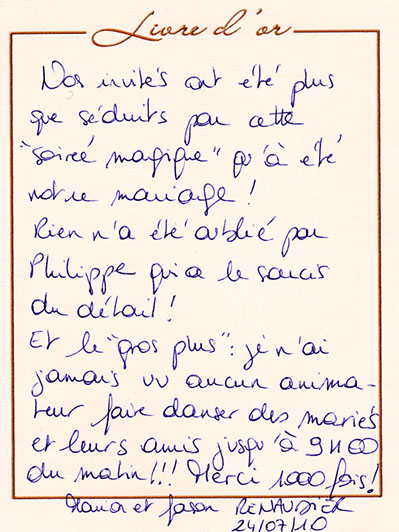 Livre d'or
Nos invités ont été plus
que séduits par cette
"soireé magique" qu'à été
notre mariage !
Rien n'a été oublié par
Philippe qui a le soucis
du détail !
Et le "gros plus" : je n'ai
jamais vu aucun anima-
teur faire danser des mariés
et leurs amis jusqu'à 9H00
du matin !!! Merci 1000 fois !
et Jason RENAUDIER
24/07/10